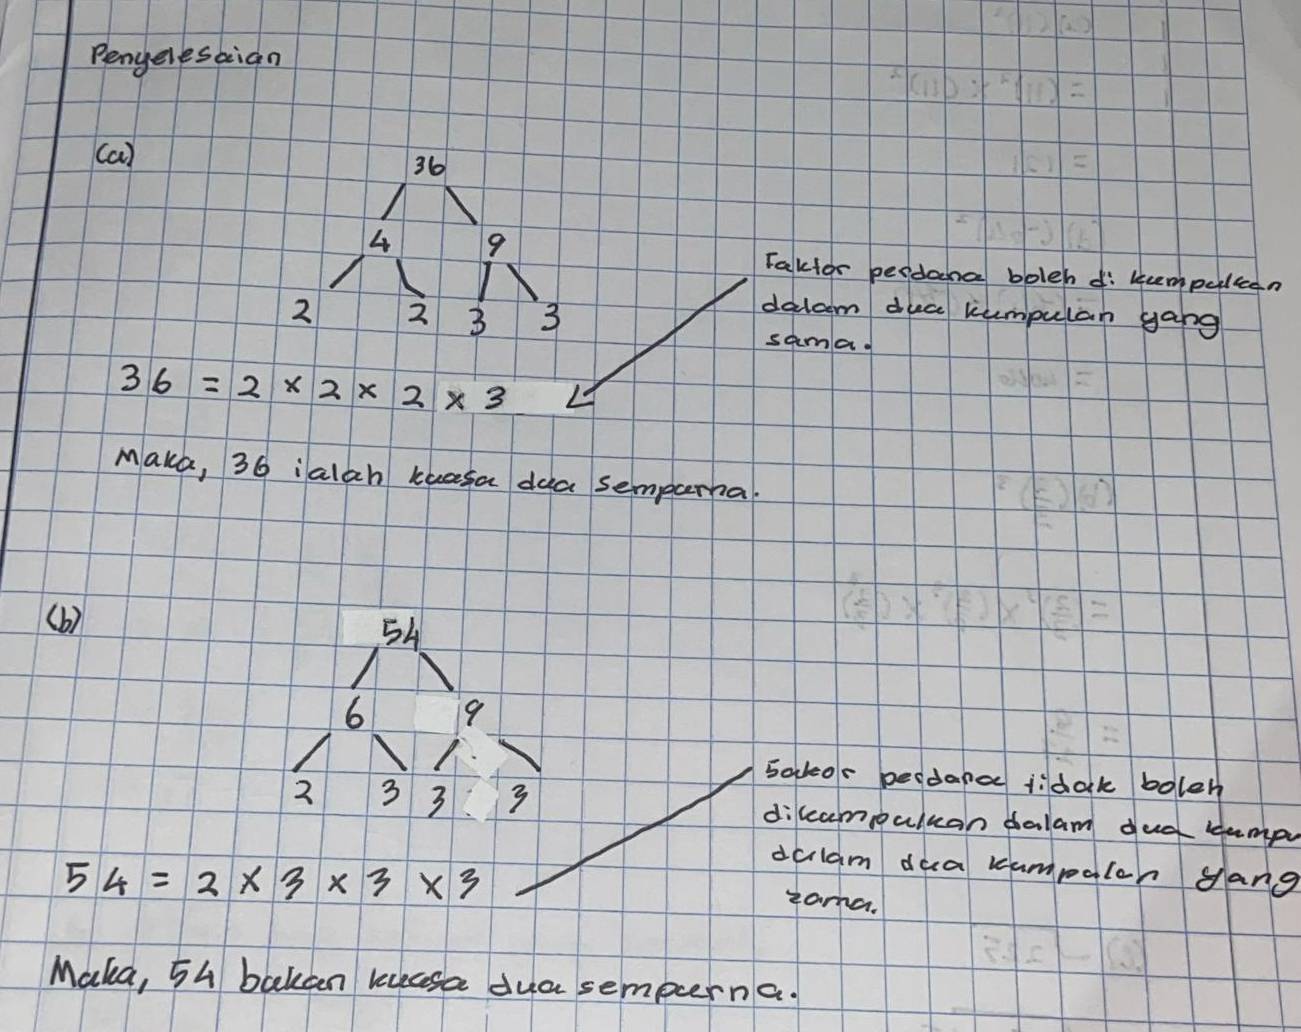 Penyelesaian
(a)
36
4 9
2 2 3 3
Faktor perdana boleh di kumpulkan
dalam dua kumpulan yang
sama.
36 = 2 × 2 × 2 × 3
Maka, 36 ialah kuasa dua sempurna.
(b)
54
6 9
2 3 3 3
Fakor perdana tidak boleh
dikumpulkan dalam dua kumpu
dalam dua kumpulan yang
sama.
54 = 2 × 3 × 3 × 3
Maka, 54 bukan kuasa dua sempurna.